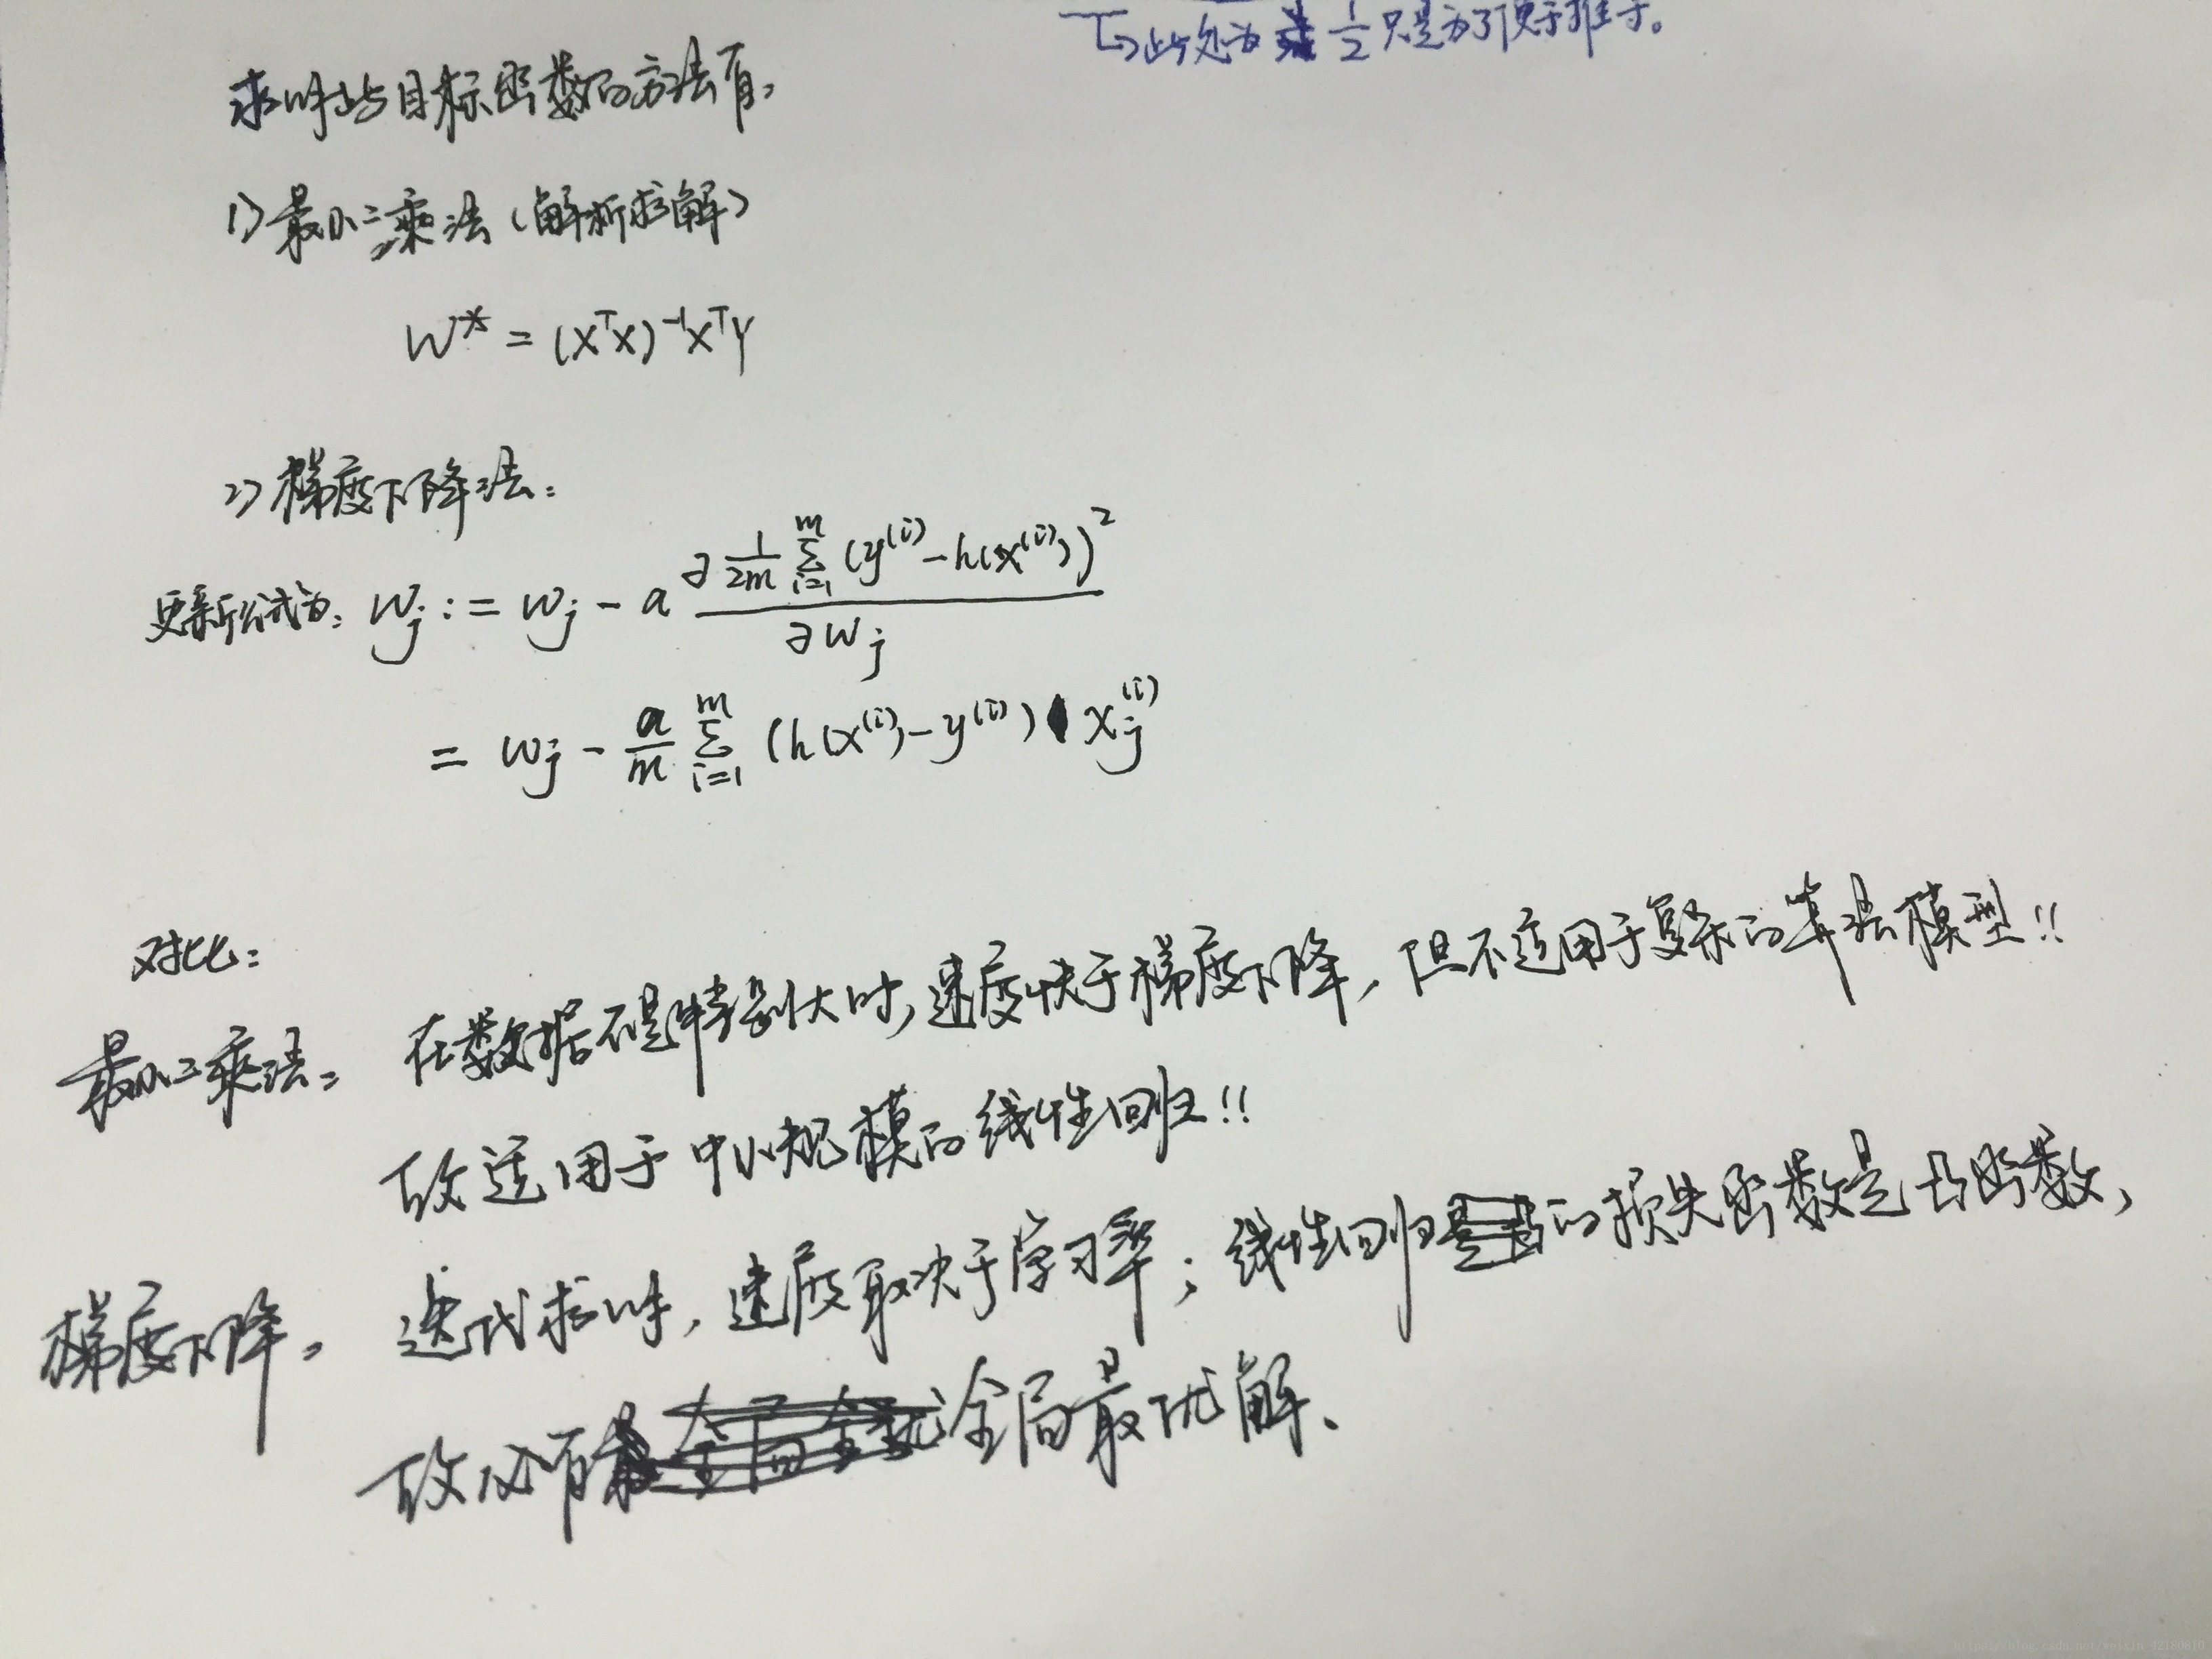 此处为 1/2 只是为了便于推导。
求解此目标函数的方法有:
1) 最小二乘法 (解析求解)
W* = (XᵀX)⁻¹XᵀY
2) 梯度下降法:
更新公式为: Wj := Wj - a ∂ 1/2m Σ_{i=1}^{m} (y⁽ⁱ⁾ - h(x⁽ⁱ⁾))² / ∂Wj
= Wj - a/m Σ_{i=1}^{m} (h(x⁽ⁱ⁾) - y⁽ⁱ⁾) xj⁽ⁱ⁾
对比:
最小二乘法: 在数据不是特别大时, 速度快于梯度下降, 但不适用于复杂的算法模型!!
故适用于中小规模的线性回归!!
梯度下降: 迭代求解, 速度取决于学习率; 线性回归的损失函数是凸函数,
故必有全局最优解、
https://blog.csdn.net/weixin_42180810